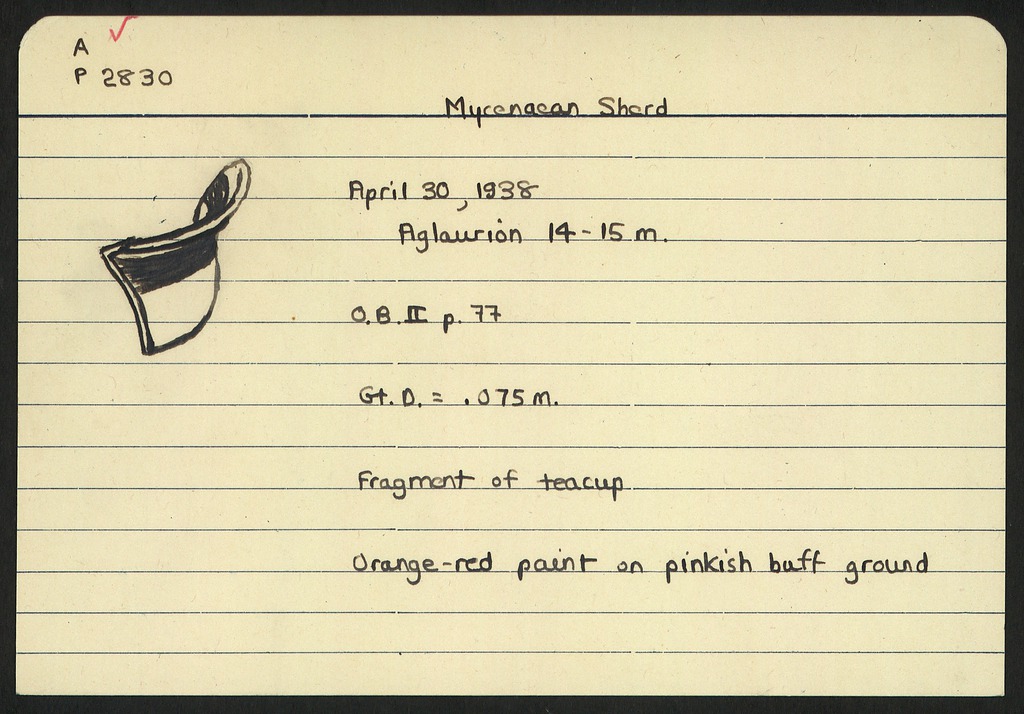 A
P 2830
Mycenaean Sherd
April 30, 1938
Aglaurion 14-15 m.
O.B. II p. 77
Gt. D. = .075 m.
Fragment of teacup
Orange-red paint on pinkish buff ground